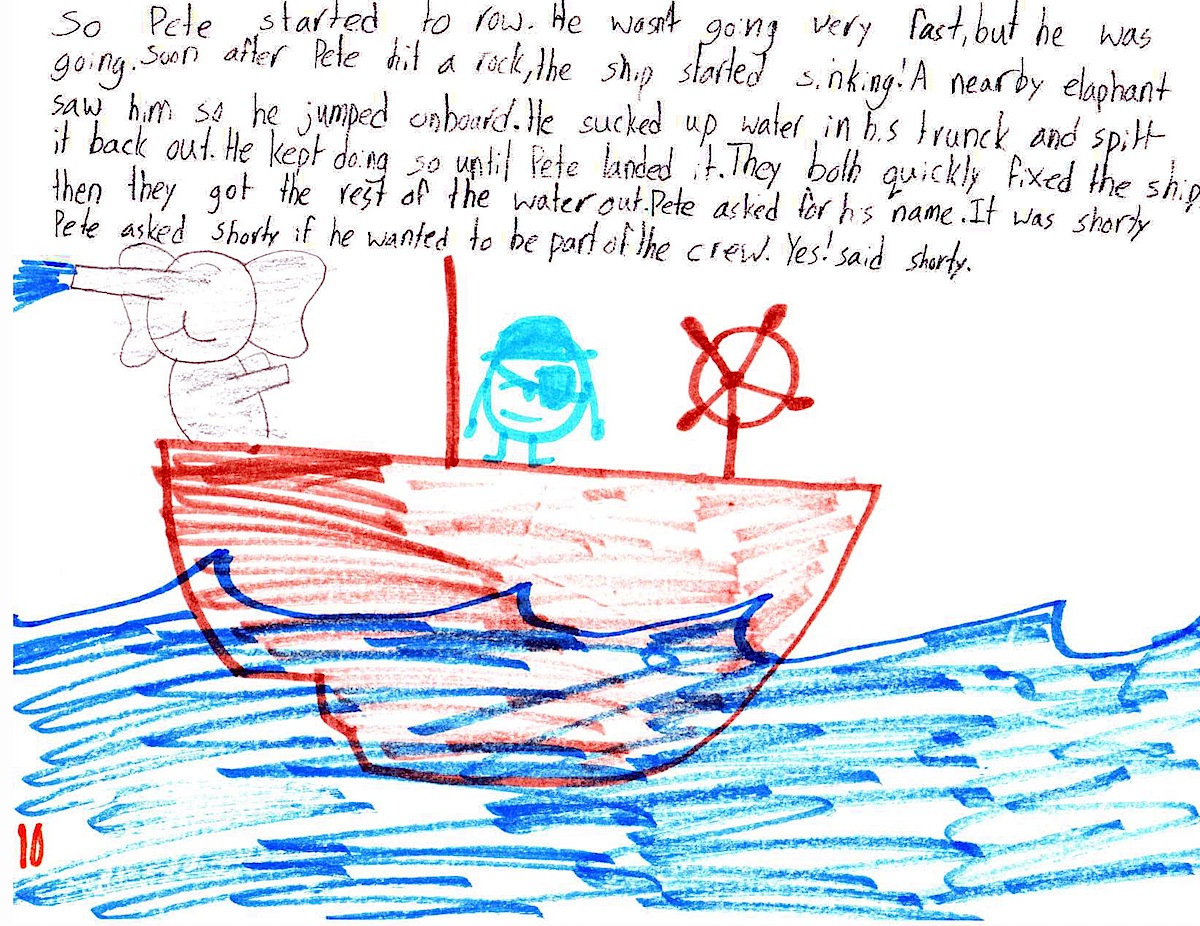 So Pete started to row. He wasn't going very fast, but he was
going. Soon after Pete hit a rock, the ship started sinking! A nearby elaphant
saw him so he jumped onboard. He sucked up water in his trunck and spitt
it back out. He kept doing so until Pete landed it. They both quickly fixed the ship
then they got the rest of the water out. Pete asked for his name. It was shorty
Pete asked shorty if he wanted to be part of the crew. Yes! said shorty.
10